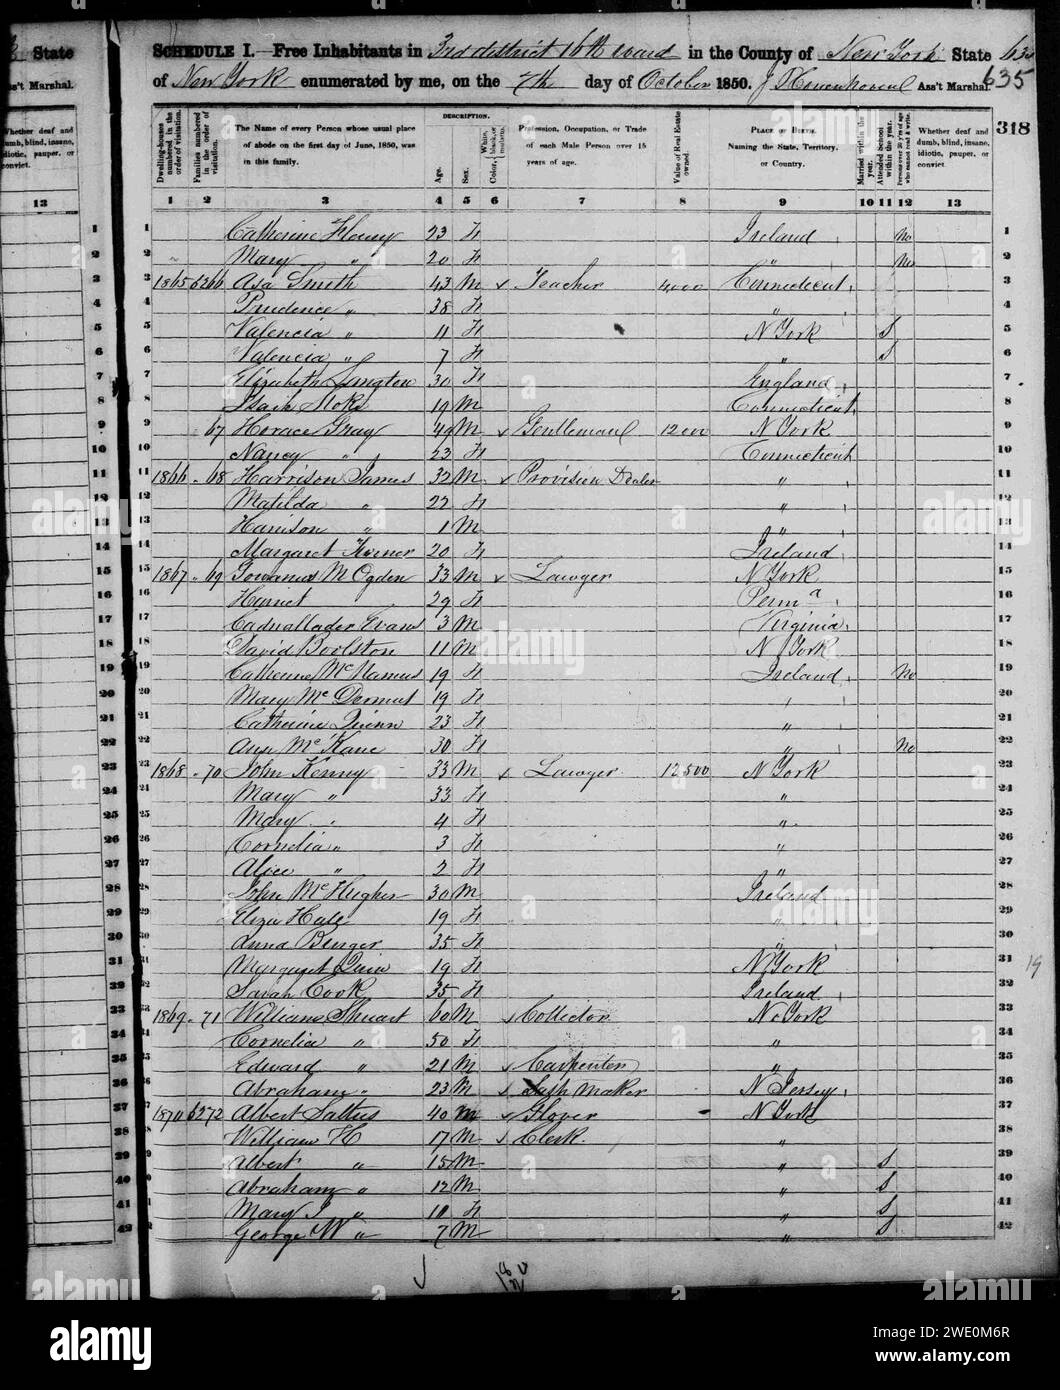 State
Ass't Marshal.
Whether deaf and dumb, blind, insane, idiotic, pauper, or convict.
13
SCHEDULE I.—Free Inhabitants in 3rd district 16th Ward in the County of New York State
of New York enumerated by me, on the 7th day of October 1850. Ass't Marshal.
635
318
Dwelling-houses numbered in the order of visitation.
Families numbered in the order of visitation.
The Name of every Person whose usual place of abode on the first day of June, 1850, was in this family.
DESCRIPTION.
Age.
Sex.
Color, White, black, or mulatto.
Profession, Occupation, or Trade of each Male Person over 15 years of age.
Value of Real Estate owned.
PLACE OF BIRTH. Naming the State, Territory, or Country.
Married within the year.
Attended School within the year.
Persons over 20 y'rs of age who cannot read & write.
Whether deaf and dumb, blind, insane, idiotic, pauper, or convict.
1 2 3 4 5 6 7 8 9 10 11 12 13
1 Catherine 23 F Ireland No 1
2 Mary " 20 F " No 2
3 1865 6266 Asa Smith 43 M Teacher 4,000 Connecticut 3
4 Prudence " 38 F " 4
5 Valencia " 11 F N York 5
6 Valencia " 7 F " 6
7 Elizabeth 30 F England 7
8 19 M Connecticut 8
9 67 Horace Gray 49 M Gentleman 12000 N York 9
10 Nancy " 23 F Connecticut 10
11 1866 " 68 Harrison James 32 M Provision Dealer " 11
12 Matilda " 22 F " 12
13 Harrison " 1 M " 13
14 Margaret 20 F Ireland 14
15 1867 " 69 Gouverneur M Ogden 33 M Lawyer N York 15
16 Harriet 29 F Penn a 16
17 Cadwallader Evans 3 M Virginia 17
18 David 11 M N York 18
19 Catherine McManus 19 F Ireland No 19
20 Mary Mc Dermut 19 F 20
21 Catherine Quinn 23 F " 21
22 Ann McKane 30 F " No 22
23 1868 " 70 John Kenny 33 M Lawyer 12500 N York 23
24 Mary " 33 F " 24
25 Mary 4 F " 25
26 Cornelia " 3 F " 26
27 Alice " 2 F " 27
28 John McHugher 30 M Ireland 28
29 Eliza Hale 19 F " 29
30 Anna 35 F " 30
31 Margaret Quin 19 F N York 31
32 Sarah Cook 35 F Ireland 32
33 1869 " 71 William Stewart 60 M Collector N York 33
34 Cornelia " 50 F " 34
35 Edward " 21 M Carpenter " 35
36 Abraham " 23 M Sash Maker N Jersey 36
37 1870 6272 Albert 40 M Glover N York 37
38 William H 17 M Clerk. " 38
39 Albert " 15 M " 39
40 Abraham " 12 M " 40
41 Mary J " 11 F " 41
42 George W " 7 M " 42
19
alamy
Image ID: 2WE0M6R
www.alamy.com